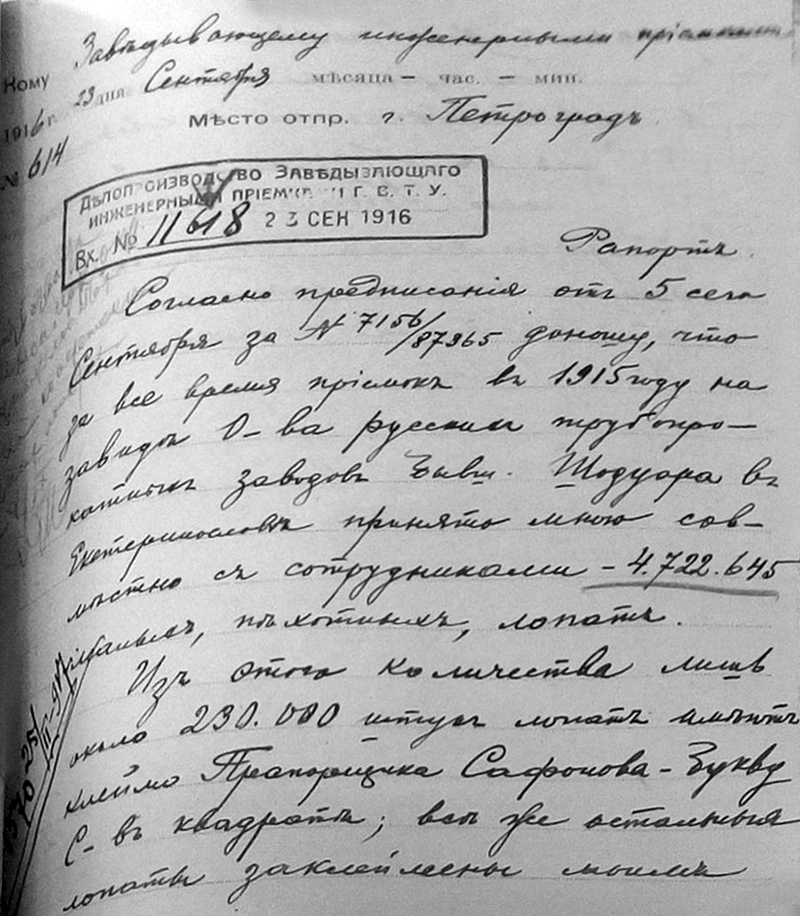 Кому Завѣдывающему инженерными пріемками
1916 г. 23 дня Сентября мѣсяца – час. – мин.
№ 614 Мѣсто отпр. г. Петроградъ.
ДѢЛОПРОИЗВОДСТВО ЗАВѢДЫВАЮЩАГО
ИНЖЕНЕРНЫМИ ПРІЕМКАМИ Г. В. Т. У.
Вх. № 11618 23 СЕН 1916
Рапортъ.
Согласно предписанія отъ 5 сего
Сентября за № 7156/87965 доношу, что
за все время пріемокъ въ 1915 году на
заводѣ О-ва русскихъ трубопро-
катныхъ заводовъ бывш. Шодуара въ
Екатеринославѣ принято мною сов-
мѣстно съ сотрудниками – 4.722.645
малыхъ, пѣхотныхъ, лопатъ.
Изъ этого количества лишь
около 230.000 штукъ лопатъ имѣютъ
клеймо Прапорщика Сафонова – букву
С – въ квадратѣ; всѣ же остальныя
лопаты заклеймены моимъ